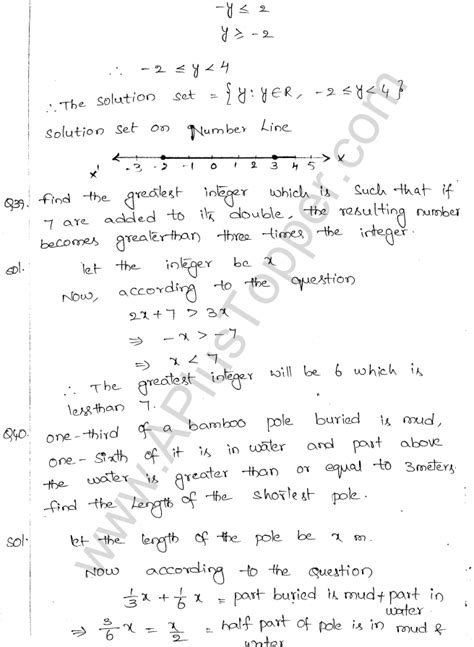 -y ≤ 2
y ≥ -2
∴ -2 ≤ y < 4
∴ The solution set = {y : y ∈ R, -2 ≤ y < 4}
solution set on Number Line
x' -3 -2 -1 0 1 2 3 4 5 x
Q39. find the greatest integer which is such that if
7 are added to its double, the resulting number
becomes greater than three times the integer.
sol. let the integer be x
Now, according to the question
2x + 7 > 3x
⇒ -x > -7
⇒ x < 7
∴ The greatest integer will be 6 which is
less than 7.
Q40. one-third of a bamboo pole buried is mud,
one-sixth of it is in water and part above
the water is greater than or equal to 3 meters.
find the Length of the shortest pole.
sol: let the length of the pole be x m.
Now according to the question
1/3 x + 1/6 x = part buried is mud + part in
water
⇒ 3/6 x = x/2 = half part of pole is in mud &
water
www.APlusTopper.com